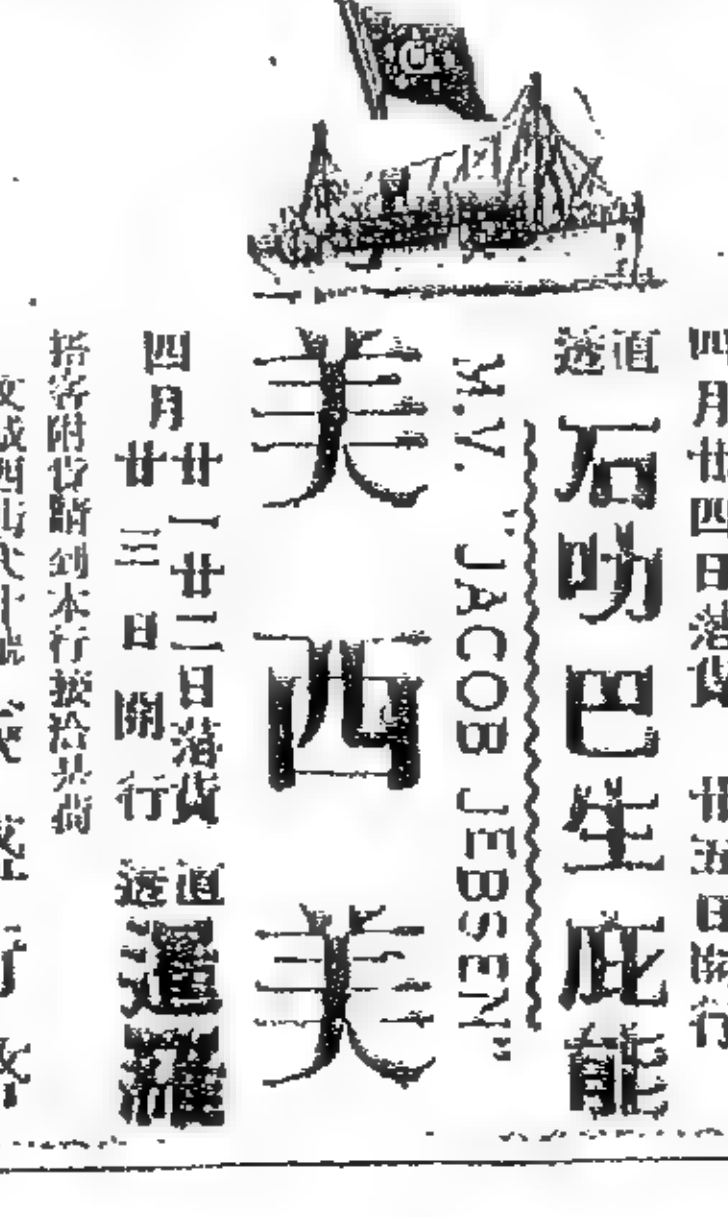 四月廿四日落貨 廿五日開行
直透
石叻巴生庇能
M.V. "JACOB JEBSEN"
美西美
四月
廿一廿二日落貨
廿三日開行
直透
暹羅
搭客附貨請到本行接洽